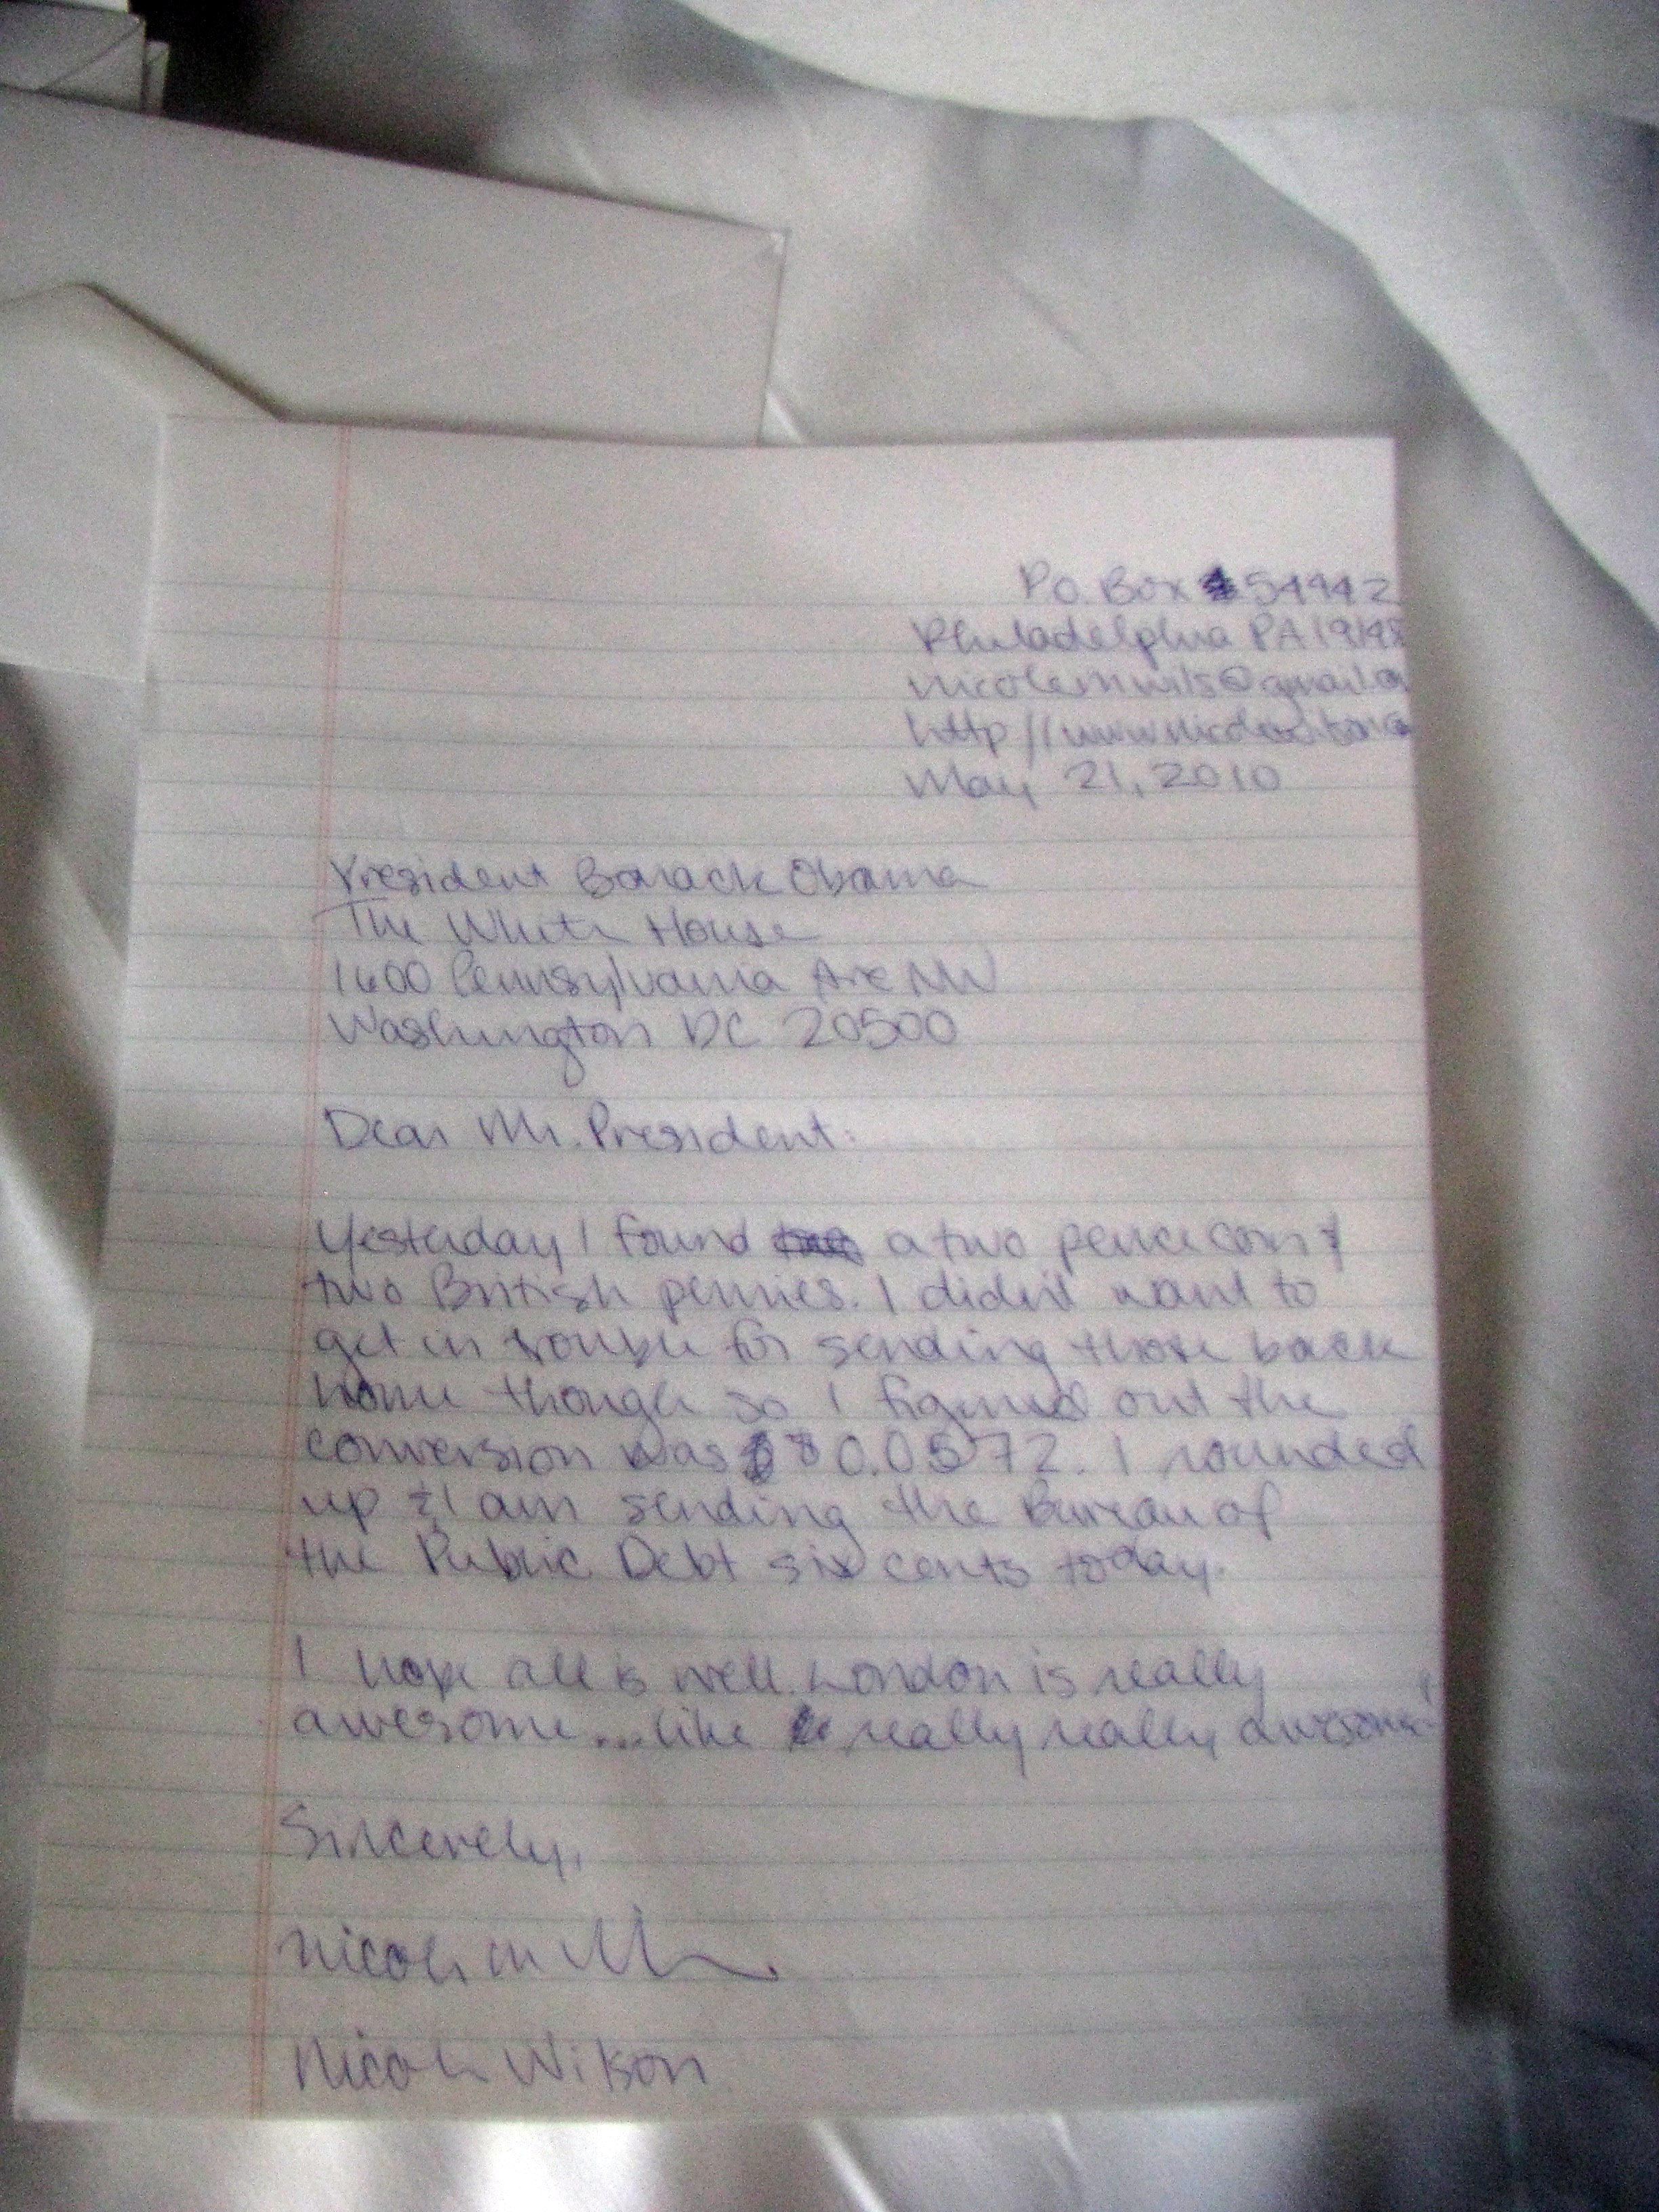 P.O. Box 54942
Philadelphia PA 19148
nicolemwils@gmail.
http://www.
May 21, 2010
President Barack Obama
The White House
1600 Pennsylvania Ave NW
Washington DC 20500
Dear Mr. President:
Yesterday I found a two pence coin &
two British pennies. I didn't want to
get in trouble for sending those back
home though so I figured out the
conversion was $0.0572. I rounded
up & I am sending the Bureau of
the Public Debt six cents today.
I hope all is well. London is really
awesome...like really really awesome!
Sincerely,
Nicole M
Nicole Wilson